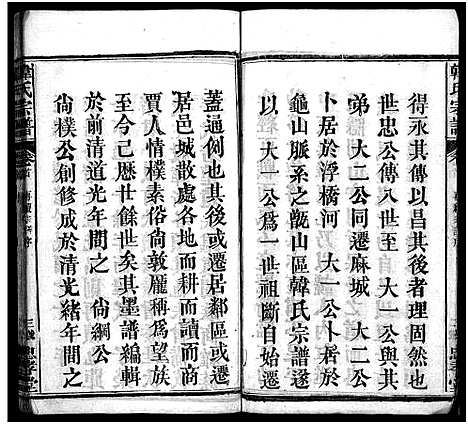 得永其傳以昌其後者理固然也
世忠公傳入世至　大一公與其
弟　大二公同遷麻城　大二公
卜居於浮橋河　大一公卜居於
龜山脈系之甑山區韓氏宗譜遂
以　大一公為一世祖斷自始
蓋通例也其後或遷居鄰區或遷
居邑城散處各地而耕而讀而商
賈人情樸素俗尚敦龐稱為望族
至今已歷廿餘世矣其墨譜編輯
於前清道光年間之　尚綱公
尚樸公創修成於清光緒年間之
韓氏宗譜
卷首